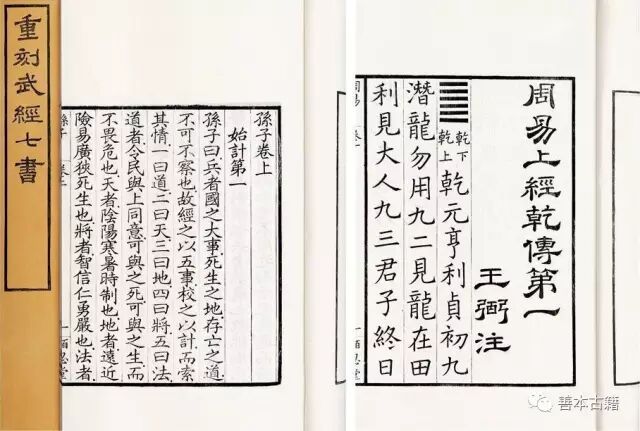 重刻武經七書
孫子卷上
始計第一
孫子曰兵者國之大事死生之地存亡之道
不可不察也故經之以五事校之以計而索
其情一曰道二曰天三曰地四曰將五曰法
道者令民與上同意可與之死可與之生而
不畏危也天者陰陽寒暑時制也地者遠近
險易廣狹死生也將者智信仁勇嚴也法者
孫子 卷上 一 皕忍堂
周易上經乾傳第一
王弼注
䷀乾下乾上乾元亨利貞初九
潛龍勿用九二見龍在田
利見大人九三君子終日
周易 一 皕忍堂
善本古籍